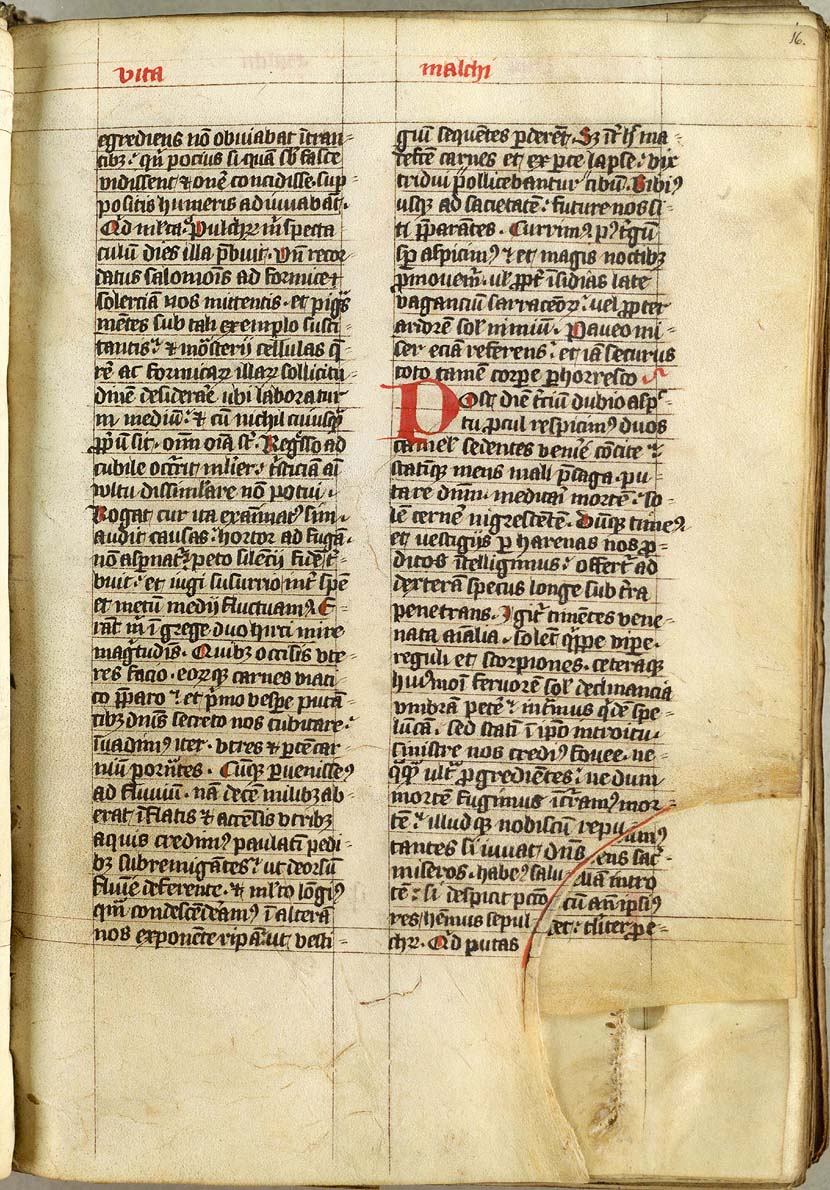 16.
vita
malchi
egrediens nō obviabat ītran-
tibȝ: qn̄ pocius si quā sb̄ fasce
vidissent & onē concidisse. sup-
positis humeris adiuuabāt.
Qid ml̄ta: Pulchrꝝ m̄ specta
culū dies illa p̄buit. Vn̄ recor-
datus salomoīs ad formice+
solerciā nos mittentis. et pig̾s
mētes sub tali exemplo susci-
tantis: & mōsterij cellulas q̄-
rē ac formicaꝝ illaꝝ sollicitu-
dinē desiderāē ubi laboratur
in mediū: & cū nichil cuiusq̄
ꝓpū sit. oīm oīa st̄. Regr̄sso ad
cubile occ̄rit ml̄ier: t̄sticiā aī
vultu dissimlare nō potui.
Rogat cur ita exanīat9 sim.
audit causas: hortor ad fugā.
nō aspnat: peto silencij fidē t̄-
buit: et iugi susurrio int̄ spē
et metū medij fluctuam9. E-
rāt m̄ ī grege duo hirci mire
magtudīs. Quibȝ occisis vt-
res facio. eorꝝ carnes viati-
co ꝑparo: et p̄mo vespe putā-
tibȝ dn̄is secreto nos cubitare:
īuadim9 iter. vtres & ꝑtē car-
niū portātes. Cūq̄ ꝑuenisse9
ad fluuiū. nā decē milibȝ ab-
erat īflatis & accēsis vtribȝ
aquis credim9 paulatī pedi-
bȝ subremigātes: ut deorsū
fluuiē deferente. & ml̄to lōgi9
qm̄ condescēderam9 ī alterā
nos exponente ripā: ut vesti-
giū sequētes ꝑderēt. Sȝ īt̄ h̄ ma-
refcē carnes et ex ꝑte lapse: vix
tridui pollicebantur cibū. Bibi9
usque ad sacietatē: future nos si-
ti ꝑparātes. Currim9 p9 t̄gū
sꝑ aspicim9 & et magis noctibȝ
ꝓmouem̄. ul̄ ꝓpt̄ īsidias late
vaganciū sarraceoꝝ: vel ꝓpter
ardorē sol̄ nimiū. Paueo mi-
ser eciā referens: et iā securus
toto tamē corpe ꝑhorresco
Post diē t̄ciū dubio asp̄-
tu ꝓcul respicim9 duos
camel̄ sedentes veniē cōcite:
statīq̄ mens mali p̄saga. pu-
tare dnm̄. meditai mortē. so-
lē cernē nigrescētē. Dūq̄ time9
et vestigijs ꝑ harenas nos ꝓ-
ditos ītelligimus: offert̄ ad
dexterā specus longe sub t̄ra
penetrans. Igit̄ timētes vene-
nata aīalia. solēt q̄ppe vipe.
reguli et scorpiones. ceteraq̄
hui9moi feruorē sol̄ declinancia
vmbrā petē: intrāmus q̄dē spe-
lūcā. sed statī ī ipō introitu
sinistre nos credi9 fouee. ne-
q̄q̄ ult̄ ꝓgredientes: ne dum
mortē fugimus īcram9 mor-
tē: illud q̄ nobiscū repu
tantes si iuuat dn̄s
miseros. habe9 salu
tē: si despicit pctō
res hēmus sepul
chꝝ. Qid putas
ens sac̄
nam intro
cū am̄ ipsi9
det: tlit̄ ꝓe-